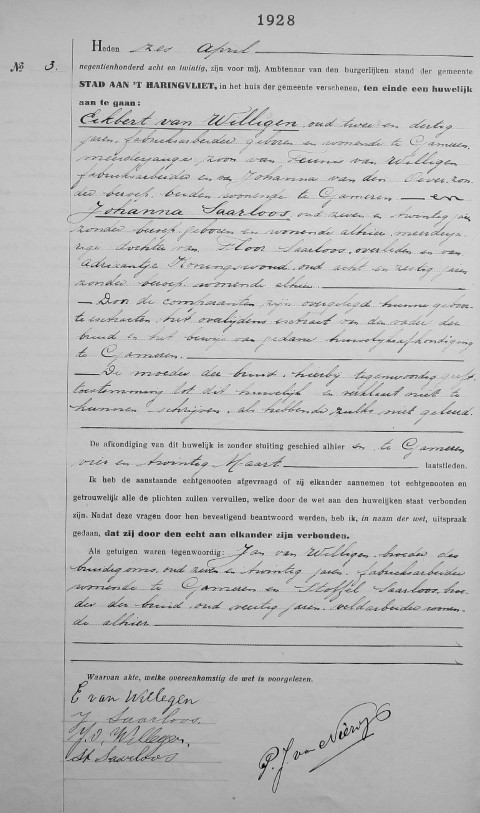 1928
Heden zes April
No. 3.
negentienhonderd acht en twintig, zijn voor mij, Ambtenaar van den burgerlijken stand der gemeente
STAD AAN 'T HARINGVLIET, in het huis der gemeente verschenen, ten einde een huwelijk
aan te gaan:
Eckbert van Willigen, oud twee en dertig
jaren, fabrieksarbeider geboren en wonende te Gameren,
meerderjarige zoon van Teunis van Willigen
fabrieksarbeider en van Johanna van den Oever, zon-
der beroep, beiden wonende te Gameren — en
Johanna Saarloos, oud zeven en twintig jaren
zonder beroep, geboren en wonende alhier, meerderja-
rige dochter van Floor Saarloos, overleden en van
Adriaantje Koningswoud, oud acht en zestig jaren
zonder beroep, wonende alhier.
— Door de comparanten zijn overgelegd hunne geboor-
te extracten, het overlijdens extract van den vader der
bruid en het bewijs van gedane huwelijksafkondiging
te Gameren.
— De moeder der bruid, hierbij tegenwoordig geeft
toestemming tot dit huwelijk en verklaart niet te
kunnen schrijven, als hebbende zulks niet geleerd.
De afkondiging van dit huwelijk is zonder stuiting geschied alhier en te Gameren
vier en twintig Maart laatstleden.
Ik heb de aanstaande echtgenooten afgevraagd of zij elkander aannemen tot echtgenooten en
getrouwelijk alle de plichten zullen vervullen, welke door de wet aan den huwelijken staat verbonden
zijn. Nadat deze vragen door hen bevestigend beantwoord werden, heb ik, in naam der wet, uitspraak
gedaan, dat zij door den echt aan elkander zijn verbonden.
Als getuigen waren tegenwoordig: Jan van Willigen, broeder des
bruidegoms, oud zeven en twintig jaren, fabrieksarbeider
wonende te Gameren en Stoffel Saarloos, broe-
der der bruid, oud veertig jaren, veldarbeider wonen-
de alhier
Waarvan akte, welke overeenkomstig de wet is voorgelezen.
E van Willegen
J. Saarloos.
J. v. Willegen.
St Saarloos